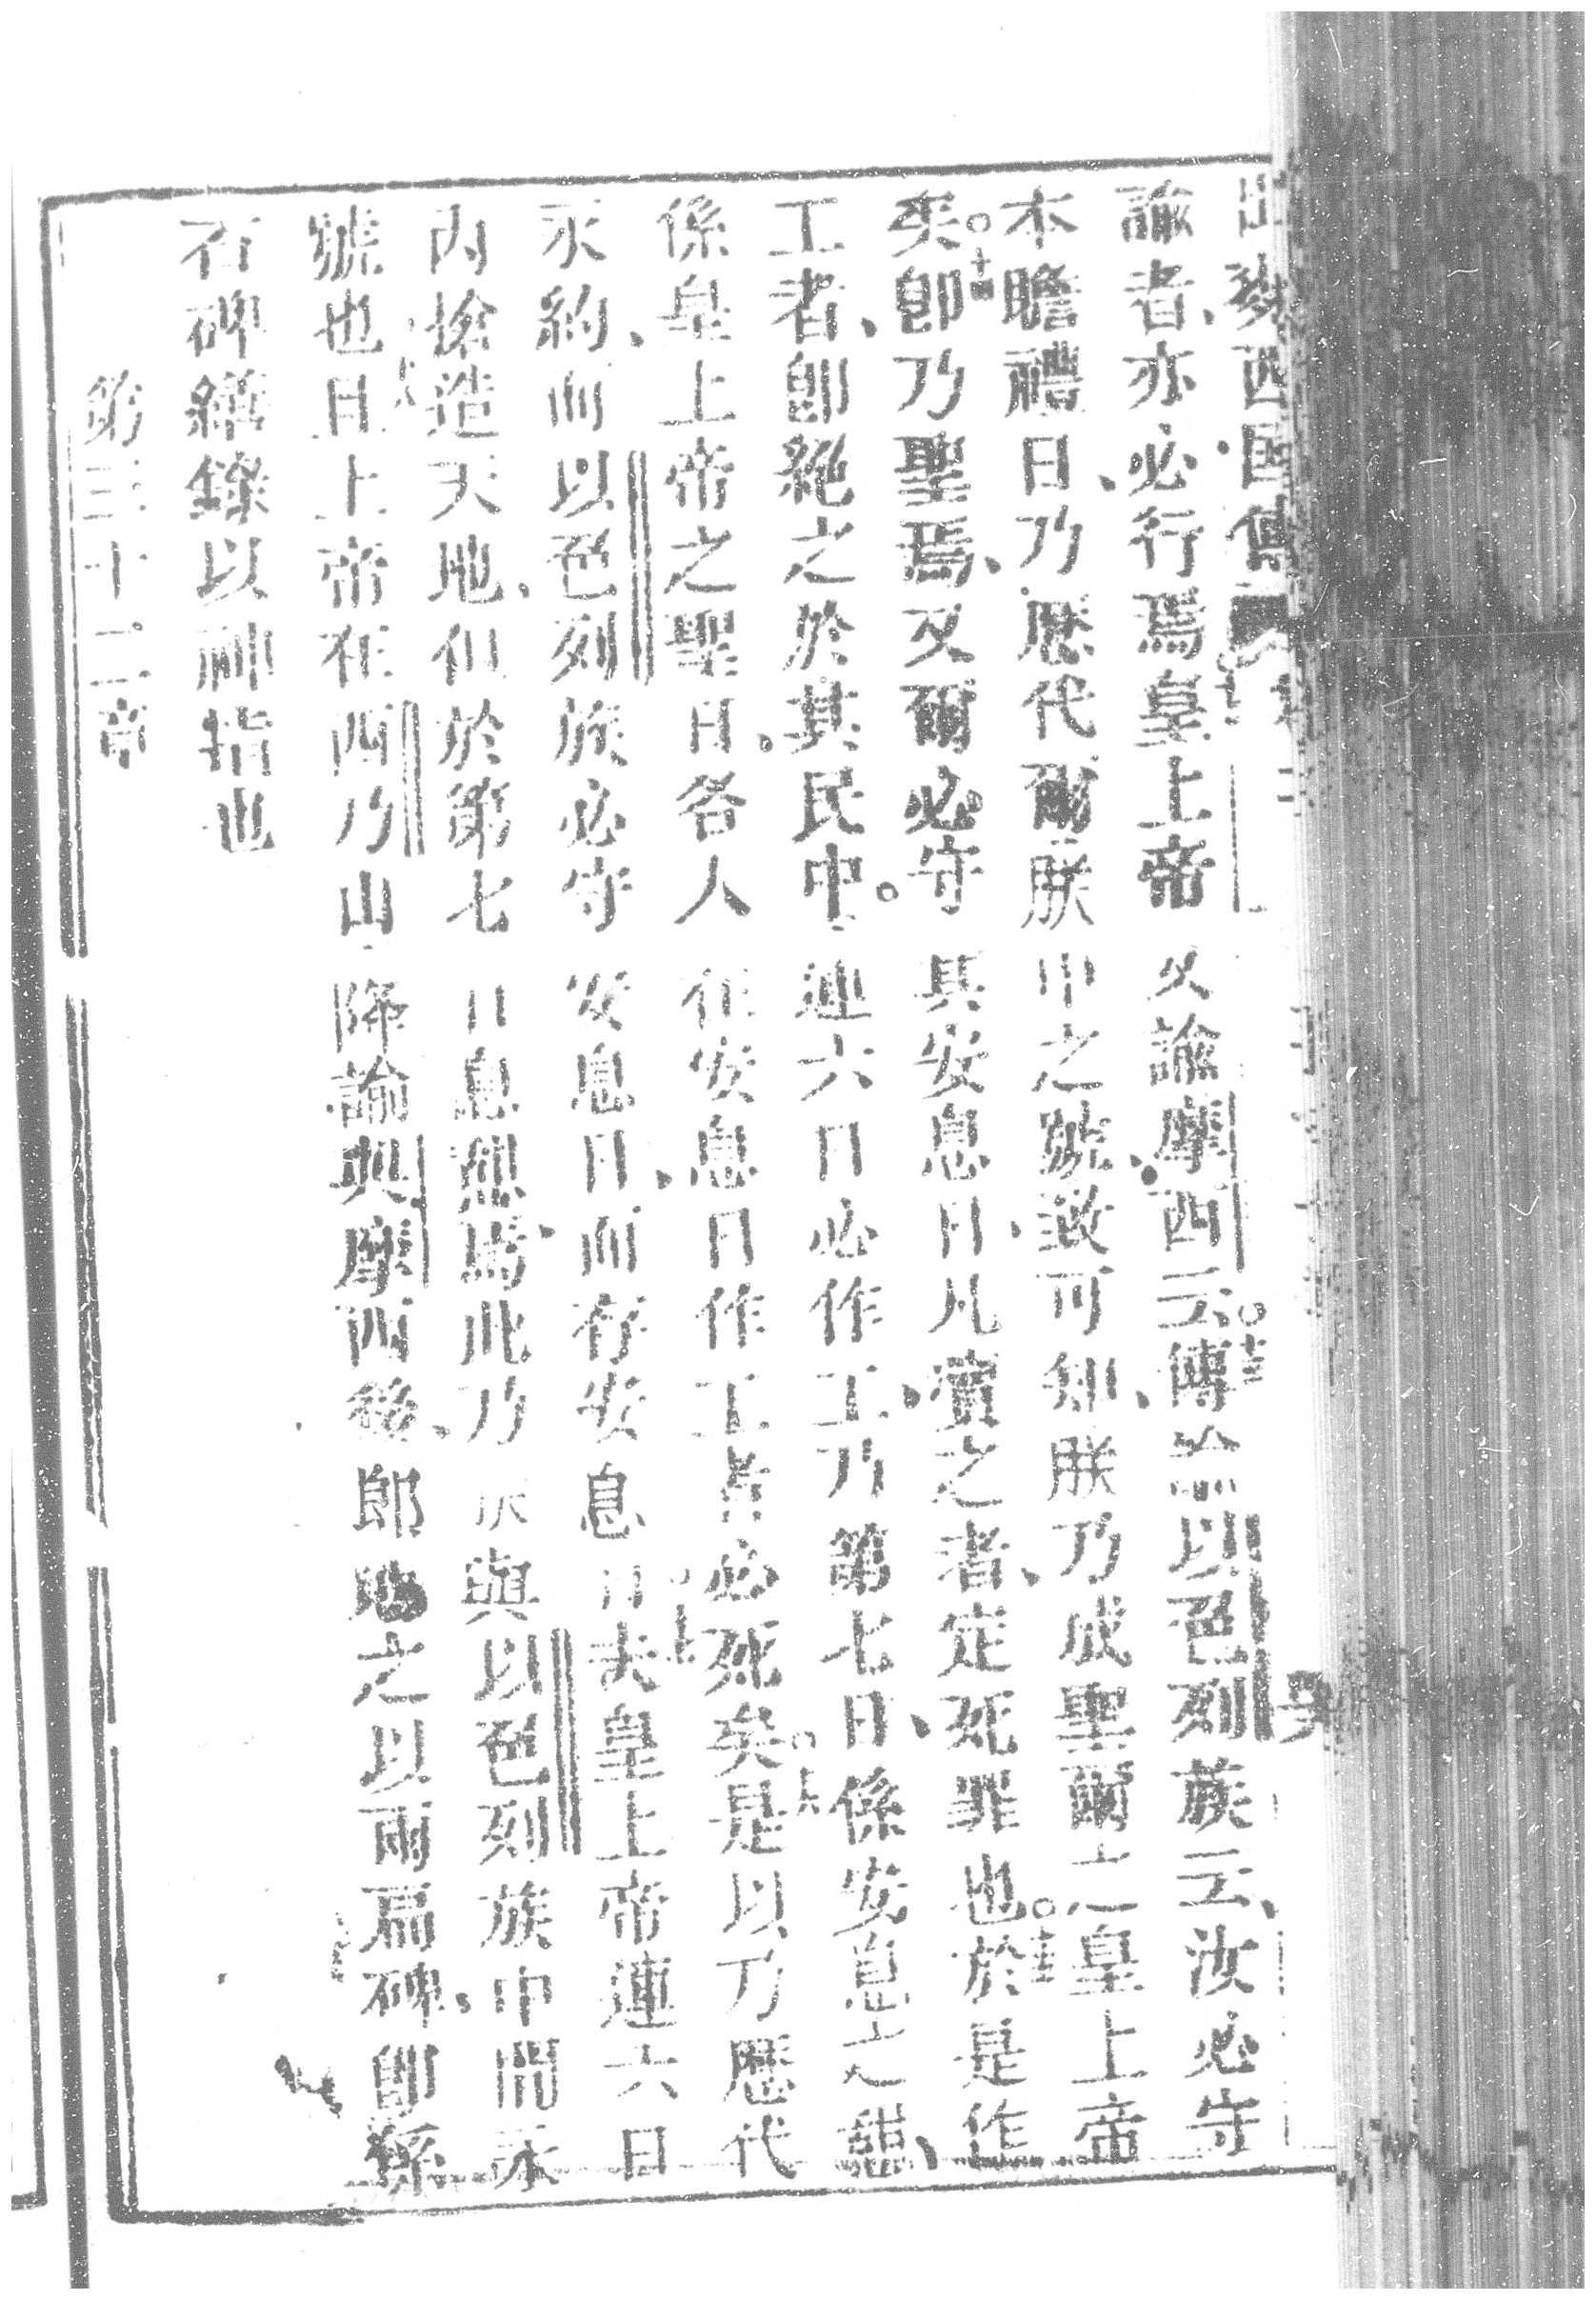 諭者亦必行焉皇上帝又諭摩西云○十三傳諭以色列族云汝必守
本瞻禮日乃歷代爾朕中之號致可知朕乃成聖爾之皇上帝
矣○十四即乃聖焉又爾必守其安息日凡瀆之者定死罪也○十五於是作
工者即絕之於其民中連六日必作工乃第七日係安息之
係皇上帝之聖日各人在安息日作工者必死矣○十六是以乃歷代
永約而以色列族必守安息日而存安息日○十七夫皇上帝連六日
內搶造天地但於第七日息想焉此乃朕與以色列族中間永
號也○十八日上帝在西乃山降諭與摩西後郎地之以兩扇碑即係
石碑繕錄以神指也
第三十二章